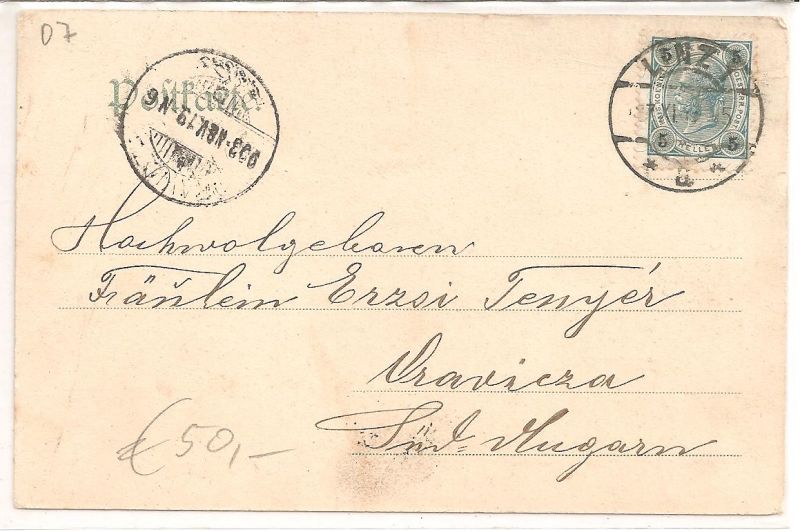 D7
Postkarte
903 NOV 12 N6
LINZ
5 5
5 HELLER 5
Hochwolgeboren
Fräulein Erzsi Tenyér
Oravicza
Süd-Ungarn
€ 50,-